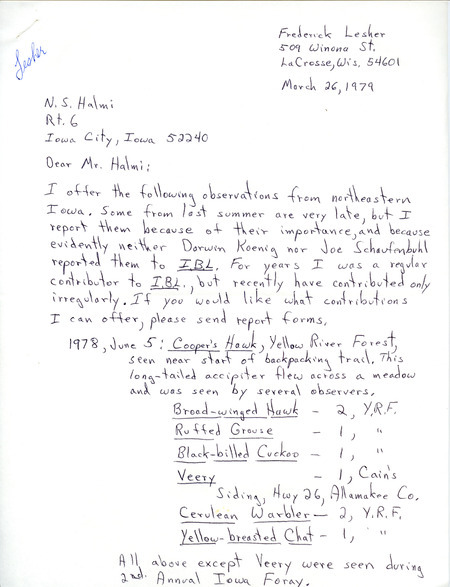 Lesher
Frederick Lesher
509 Winona St.
LaCrosse, Wis. 54601
March 26, 1979
N. S. Halmi
Rt. 6
Iowa City, Iowa 52240
Dear Mr. Halmi:
I offer the following observations from northeastern
Iowa. Some from last summer are very late, but I
report them because of their importance, and because
evidently neither Darwin Koenig nor Joe Schaufenbuhl
reported them to I.B.L. For years I was a regular
contributor to I.B.L., but recently have contributed only
irregularly. If you would like what contributions
I can offer, please send report forms.
1978, June 5: Cooper's Hawk, Yellow River Forest,
seen near start of backpacking trail. This
long-tailed accipiter flew across a meadow
and was seen by several observers.
Broad-winged Hawk - 2, Y.R.F.
Ruffed Grouse - 1, "
Black-billed Cuckoo - 1, "
Veery - 1, Cain's
Siding, Hwy 26, Allamakee Co.
Cerulean Warbler - 2, Y.R.F.
Yellow-breasted Chat - 1, "
All above except Veery were seen during
2nd Annual Iowa Foray.